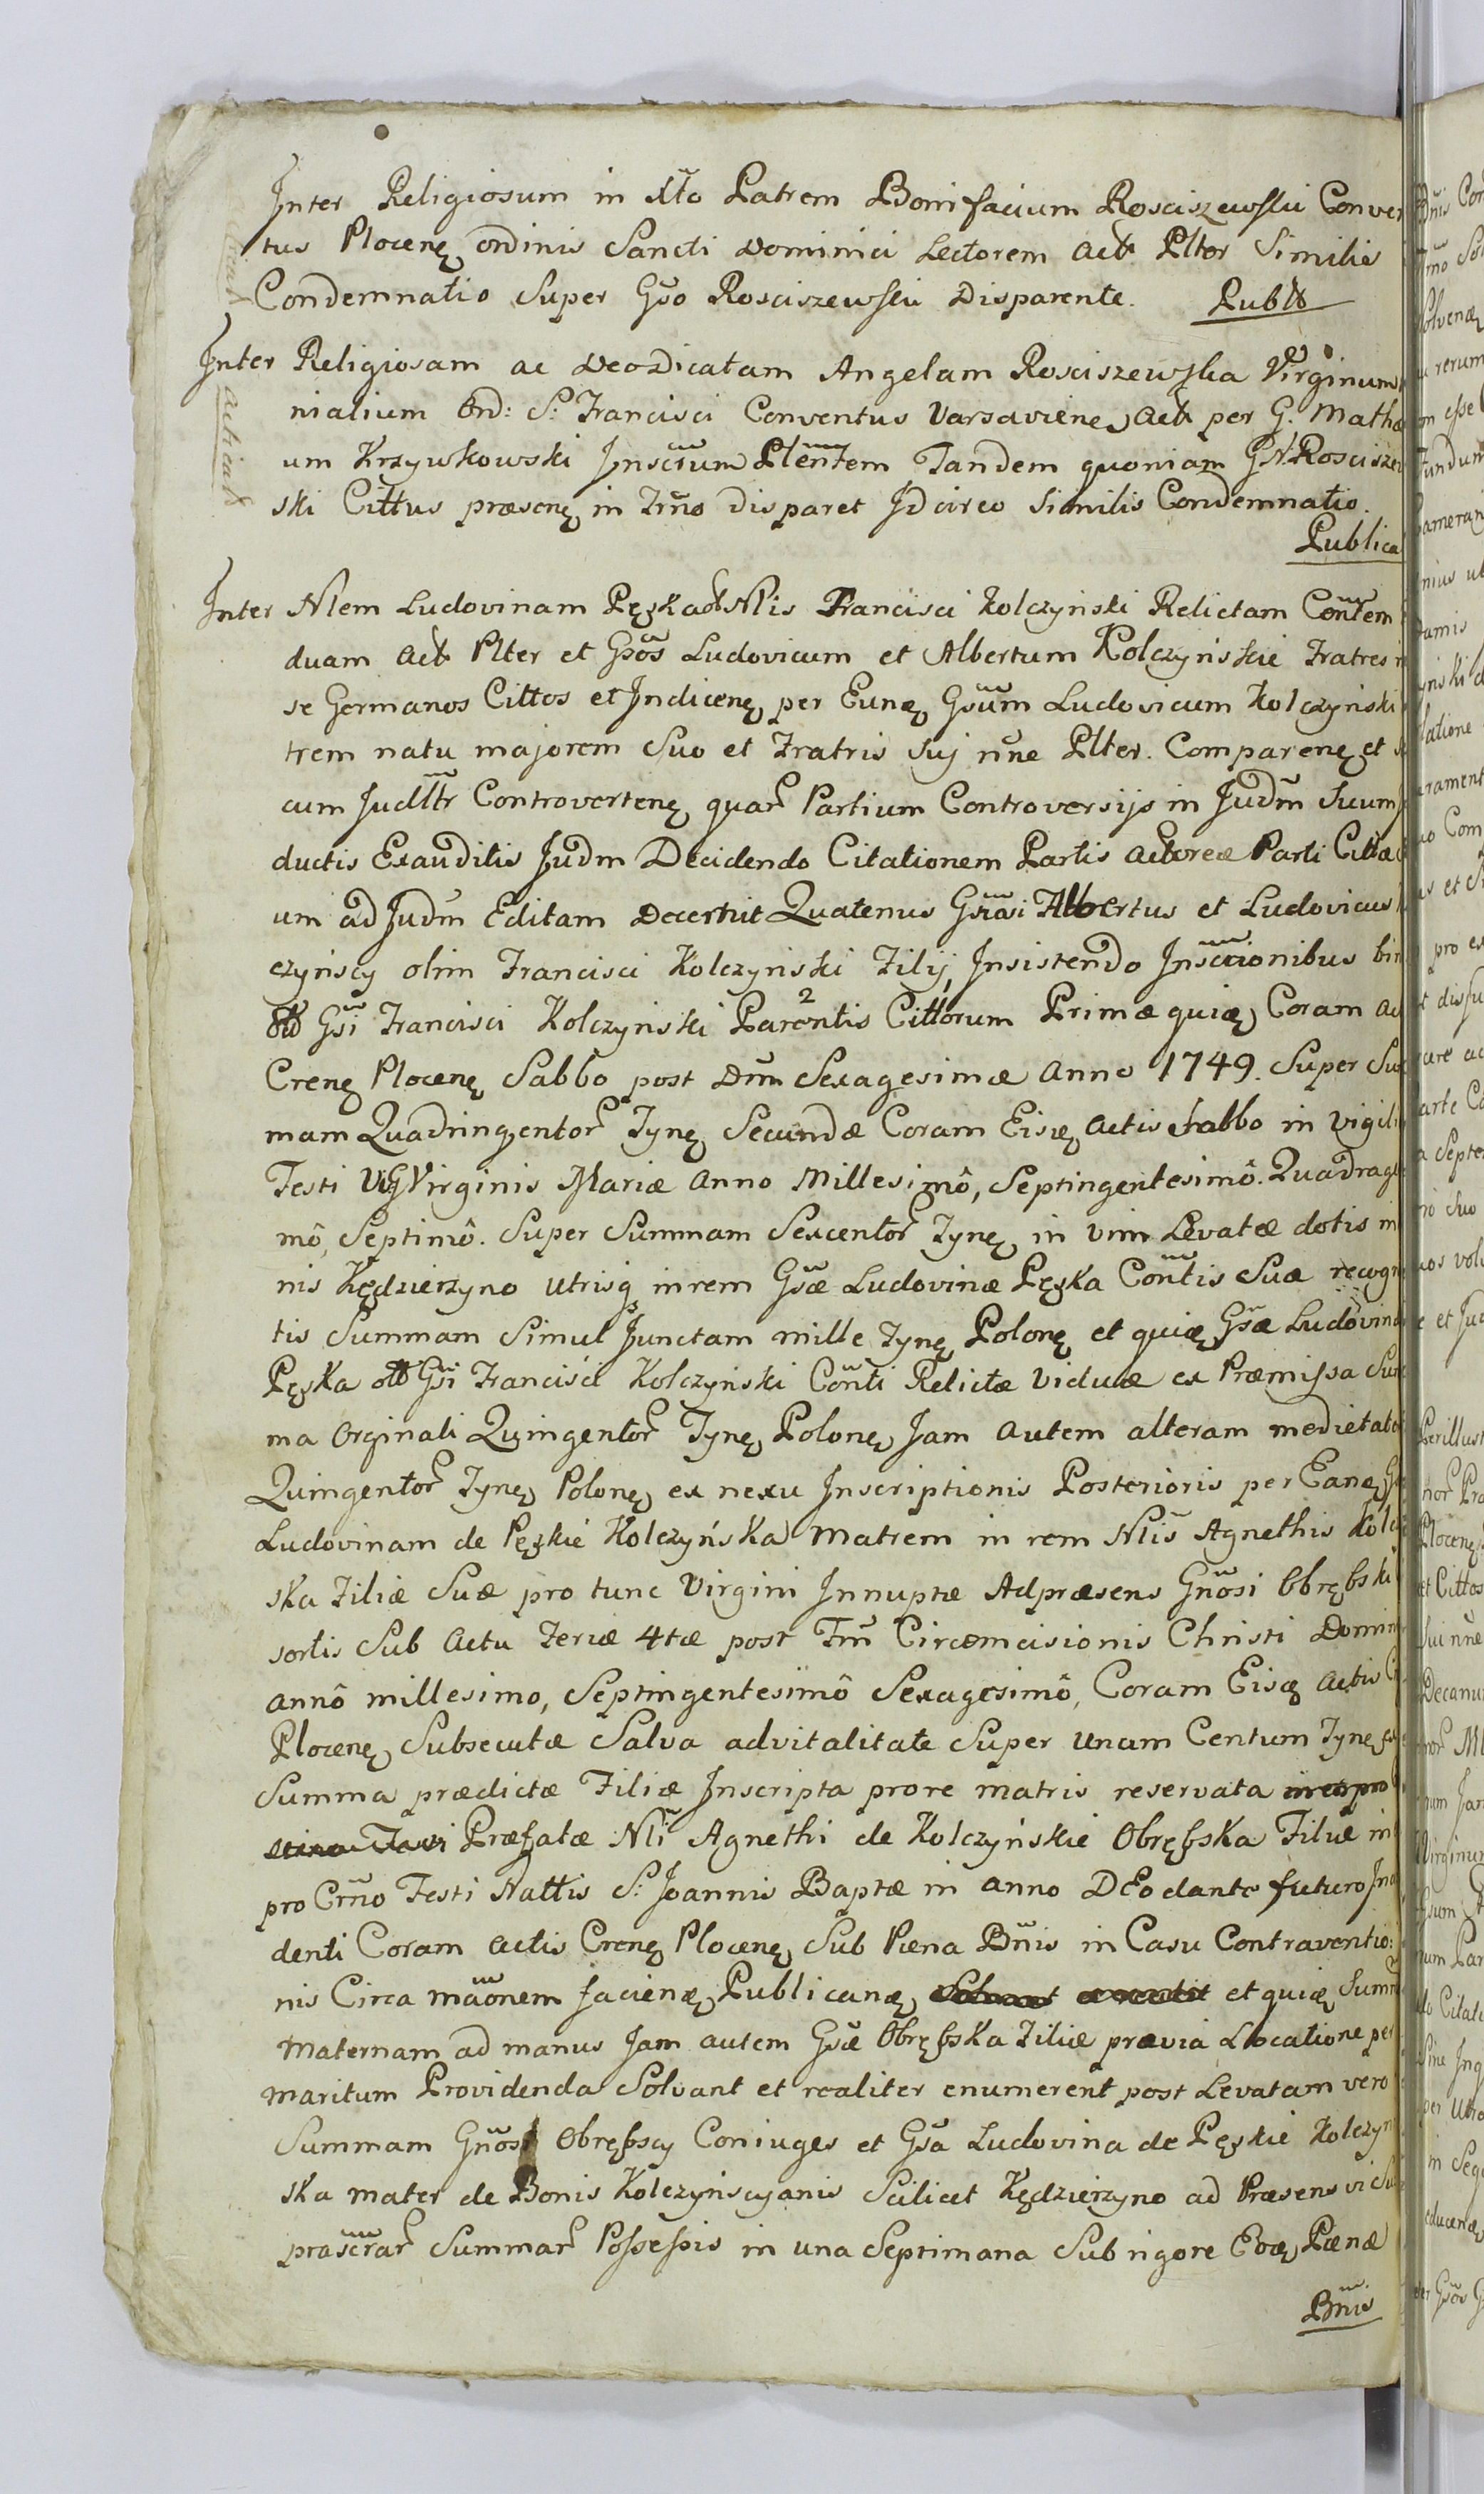 Inter Religiosum in Xto Patrem Bonifacium Rosciszewski Conven
tus Plocenę ordinis Sancti Dominici Lectorem actt Plter Similis
Condemnatio Super Gso Rosciszewski Disparente. Publt
Inter Religiosam ac Deo Dicatam Angelam Rosciszewska Virginum
nialium Ord: S: Francisci Conventus Varsavienę actt per G. Mathæ
um Krzywkowski Inscrum Plentem Tandem quoniam GN. Rosciszew
ski Cittus præsenę in Trno disparet Idcirco Similis Condemnatio.
Publica
Inter Nlem Ludovinam Pęska ott Nlis Francisci Kolczyński Relictam Contem
duam actt Plter et Gsos Ludovicum et Albertum Kolczyńskie Fratres in
se Germanos Cittos et Indicenę per Eunę Gsum Ludovicum Kolczyński
trem natu majorem Suo et Fratris Suj nne Plter. Comparenę et
cum Judltr Controvertenę quar Partium Controversijs in Judm Suum
ductis Exauditis Judm Decidendo Citationem Partis actoreæ Parti Cittæ
um ad Judm Editam Decernit Quatenus Gnosi Albertus et Ludovicus
czyńscy olim Francisci Kolczyński Filij, Insistendo Inscrionibus bin
ott Gsi Francisci Kolczyński Parentis Cittorum Primæ quię Coram ac
Crenę Plocenę Sabbo post Dnm Sexagesimæ anno 1749. Super Su
mam Quadringentor Fynę Secundæ Coram Eisię actis Sabbo in vigili
Festi Virginis Mariæ anno Millesimô, Septingentesimô. Quadrage
mô, Septimô. Super Summam Sexcentor Fynę in vim Levatæ dotis
nis Kędzierzyno utrisq in rem Gsæ Ludovinæ Pęska Contis Suæ recogn
tis Summam Simul Junctam mille Fynę Polonę et quię Gsæ Ludovinæ
Pęska ott Gsi Francisci Kolczyński Conti Relictæ viduæ ex Præmissa Su
ma Orginali Quingentor Fynę Polonę Jam autem alteram medietatem
Quingentor Fynę Polonę ex nexu Inscriptionis Posterioris per Eanę
Ludovinam de Pęskie Kolczyńska Matrem in rem Nlis Agnethis Kolczy
ska Filiæ Suæ pro tunc Virgini Innuptæ Adpræsens Gnosi Obrębski
sortis Sub actu Feriæ 4tæ post Fm Circumcisionis Christi Domini
annô millesimo, Septingentesimô Sexagesimô, Coram Eisię actis
Plocenę Subsecutæ Salva advitalitate Super unam Centum Fynę
Summa prædictæ Filiæ Inscripta pro re matris reservata
Præfatæ Nli Agnethi de Kolczyńskie Obrębska Filiæ in
pro Crno Festi Nattis S: Joannis Baptæ in anno DEo dante futuro
denti Coram actis Crenę Plocenę Sub Pæna Bnis in Casu Contraventio:
nis Circa maonem facienę Publicanę et quię Summ
maternam ad manus Jam autem Gsæ Obrębska Filiæ prævia Locatione per
maritum Providenda Solvant et realiter enumerent post Levatam vero
Summam Gnosi Obrębscy Coniuges et Gsa Ludovina de Pęskie Kolczyń
ska mater de Bonis Kolczyńscyanis Scilicet Kędzierzyno ad Præsens vi
prascrar Summar Possessis in una Septimana Sub rigore Eoę Pænæ
Bnis